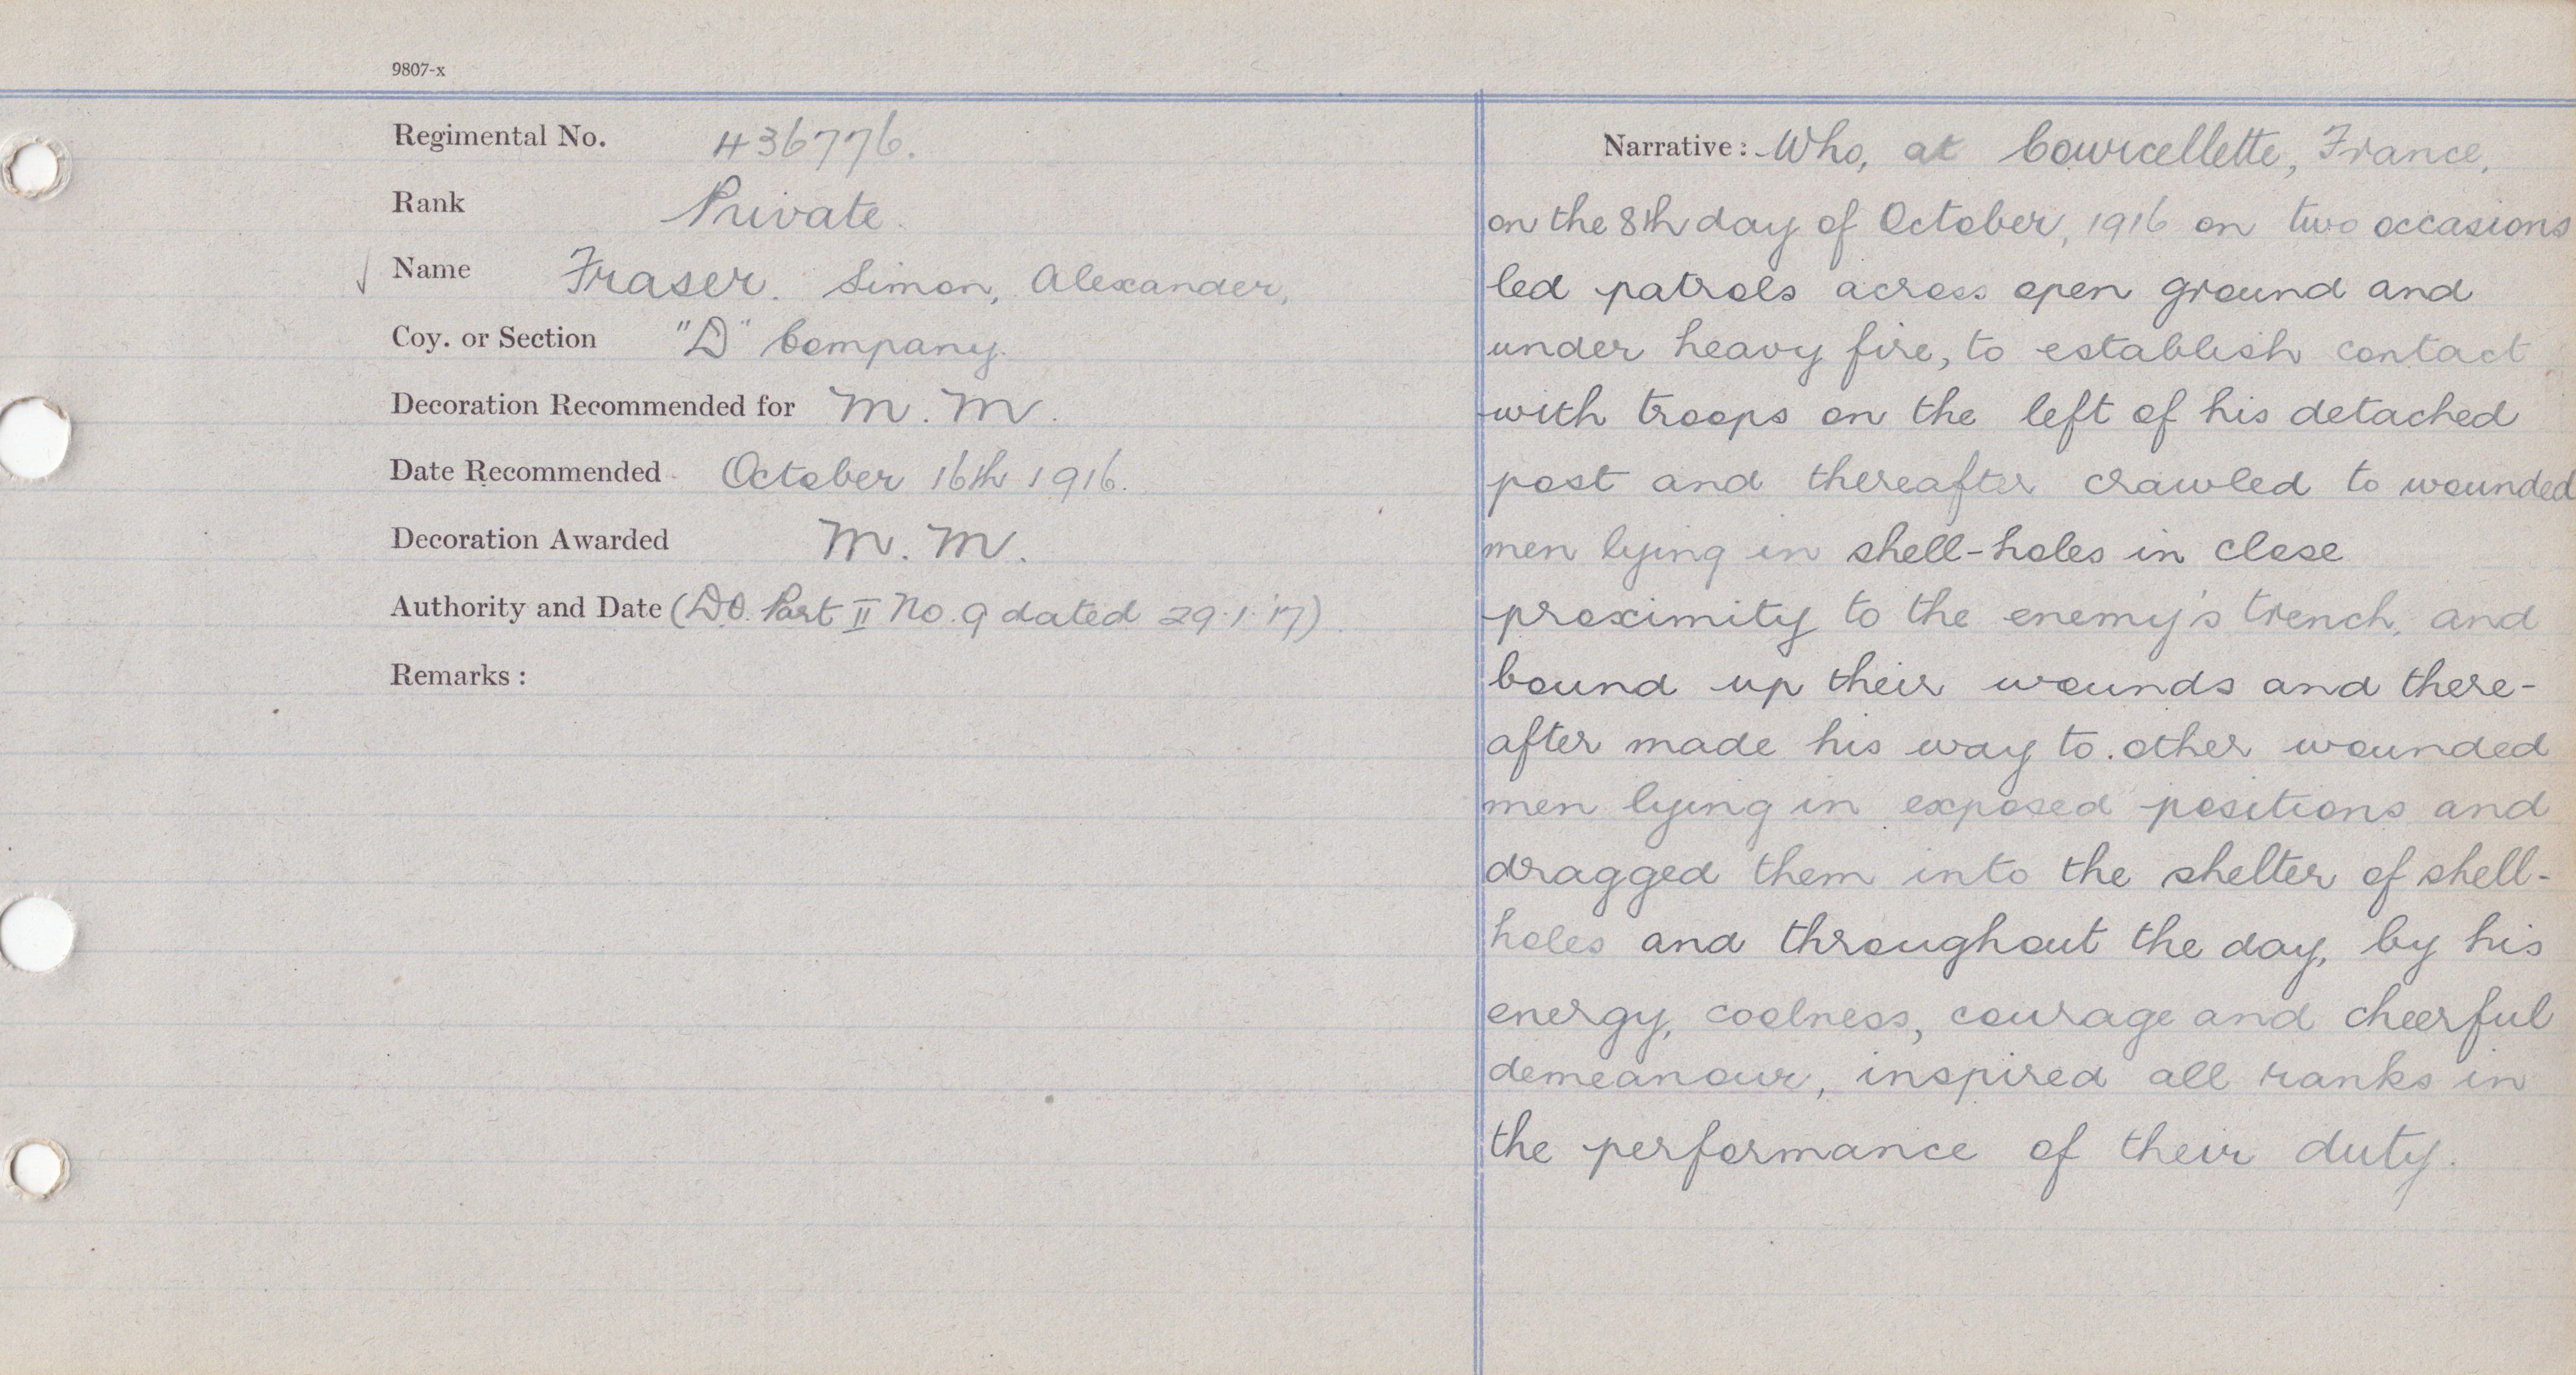 9807-x
Regimental No. 436776.
Rank Private.
Name Fraser. Simon, Alexander,
Coy. or Section "D" Company.
Decoration Recommended for M.M.
Date Recommended October 16th 1916.
Decoration Awarded M.M.
Authority and Date (D.O. Part II No. 9 dated 29.1.17)
Remarks :
Narrative : Who, at Courcellette, France,
on the 8th day of October, 1916 on two occasions
led patrols across open ground and
under heavy fire, to establish contact
with troops on the left of his detached
post and thereafter crawled to wounded
men lying in shell-holes in close
proximity to the enemy's trench, and
bound up their wounds and there-
after made his way to other wounded
men lying in exposed positions and
dragged them into the shelter of shell-
holes and throughout the day, by his
energy, coolness, courage and cheerful
demeanour, inspired all ranks in
the performance of their duty.